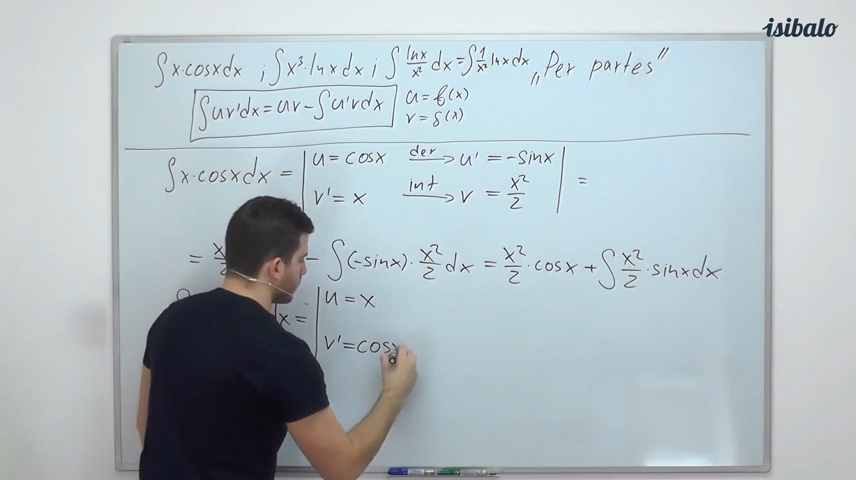 isibalo
∫x·cosxdx ; ∫x³·lnxdx ; ∫ lnx/x² dx = ∫ 1/x² lnxdx „Per partes"
∫uv'dx = uv - ∫u'vdx u = f(x)
v = g(x)
∫x·cosxdx = | u = cosx der→ u' = -sinx | =
v' = x int→ v = x²/2
= - ∫(-sinx)· x²/2 dx = x²/2 · cosx + ∫ x²/2 · sinxdx
x = | u = x
v' = cosx